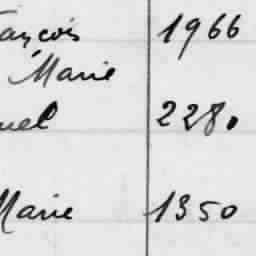 ançois 1966
Marie
uel 2280
Marie 1350